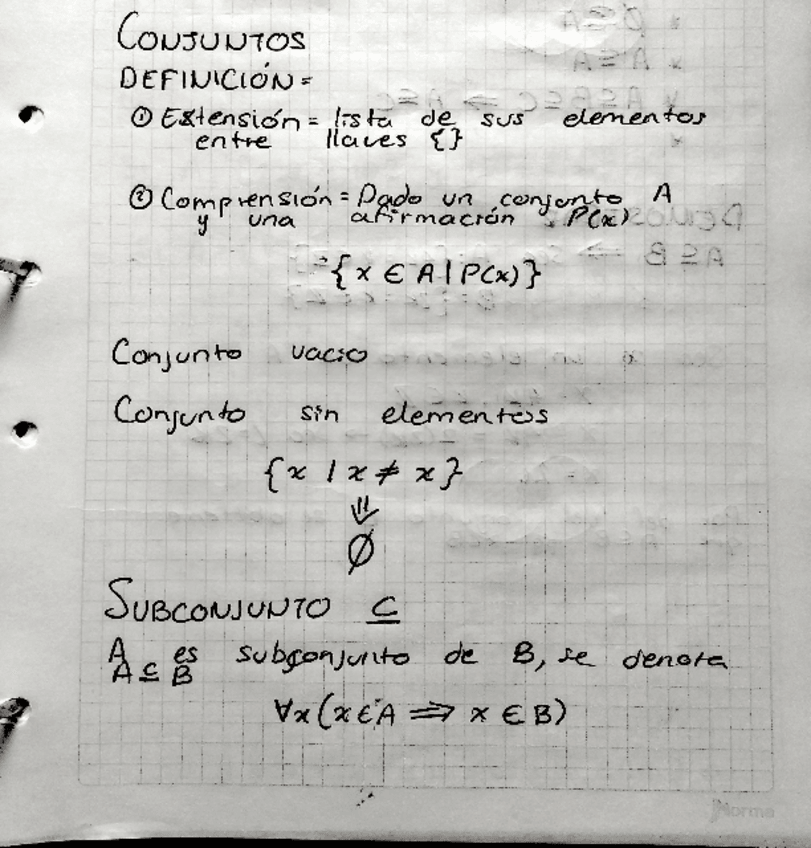 CONJUNTOS
DEFINICIÓN=
① Extensión = lista de sus elementos
entre llaves {}
② Comprensión = Dado un conjunto A
y una afirmación P(x)
= {x ∈ A | P(x)}
Conjunto vacio
Conjunto sin elementos
{x / x ≠ x}
⇓
∅
SUBCONJUNTO ⊆
A es subconjunto de B, se denota
A ⊆ B
∀x (x ∈ A ⟹ x ∈ B)
Norma